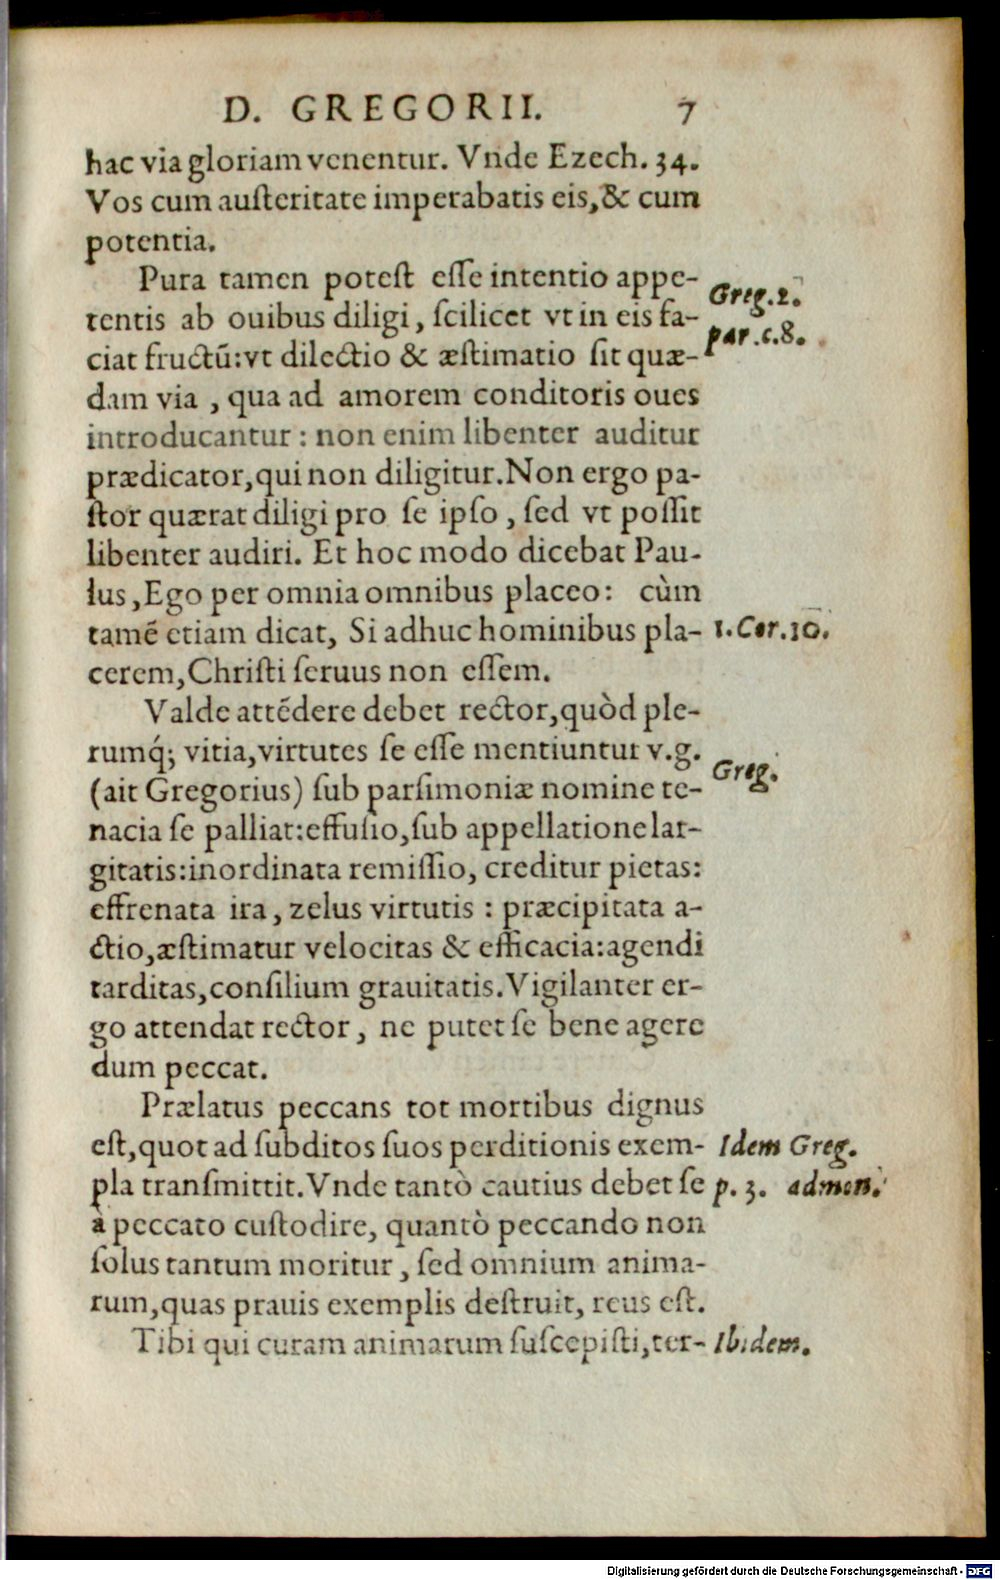 D. GREGORII. 7
hac via gloriam venentur. Vnde Ezech. 34.
Vos cum auſteritate imperabatis eis, & cum
potentia.
Pura tamen poteſt eſſe intentio appe-
tentis ab ouibus diligi, ſcilicet vt in eis fa-
ciat fructū: vt dilectio & æſtimatio ſit quæ-
dam via, qua ad amorem conditoris oues
introducantur: non enim libenter auditur
prædicator, qui non diligitur. Non ergo pa-
ſtor quærat diligi pro ſe ipſo, ſed vt poſſit
libenter audiri. Et hoc modo dicebat Pau-
lus, Ego per omnia omnibus placeo: cùm
tamē etiam dicat, Si adhuc hominibus pla-
cerem, Chriſti ſeruus non eſſem.
Valde attēdere debet rector, quòd ple-
rumq́; vitia, virtutes ſe eſſe mentiuntur v.g.
(ait Gregorius) ſub parſimoniæ nomine te-
nacia ſe palliat: effuſio, ſub appellatione lar-
gitatis: inordinata remiſſio, creditur pietas:
effrenata ira, zelus virtutis: præcipitata a-
ctio, æſtimatur velocitas & efficacia: agendi
tarditas, conſilium grauitatis. Vigilanter er-
go attendat rector, ne putet ſe bene agere
dum peccat.
Prælatus peccans tot mortibus dignus
eſt, quot ad ſubditos ſuos perditionis exem-
pla tranſmittit. Vnde tantò cautius debet ſe
à peccato cuſtodire, quantò peccando non
ſolus tantum moritur, ſed omnium anima-
rum, quas prauis exemplis deſtruit, reus eſt.
Tibi qui curam animarum ſuſcepiſti, ter-
Greg. 2.
par. c. 8.
1. Cor. 10.
Greg.
Idem Greg.
p. 3. admon.
Ibidem.
Digitalisierung gefördert durch die Deutsche Forschungsgemeinschaft - DFG